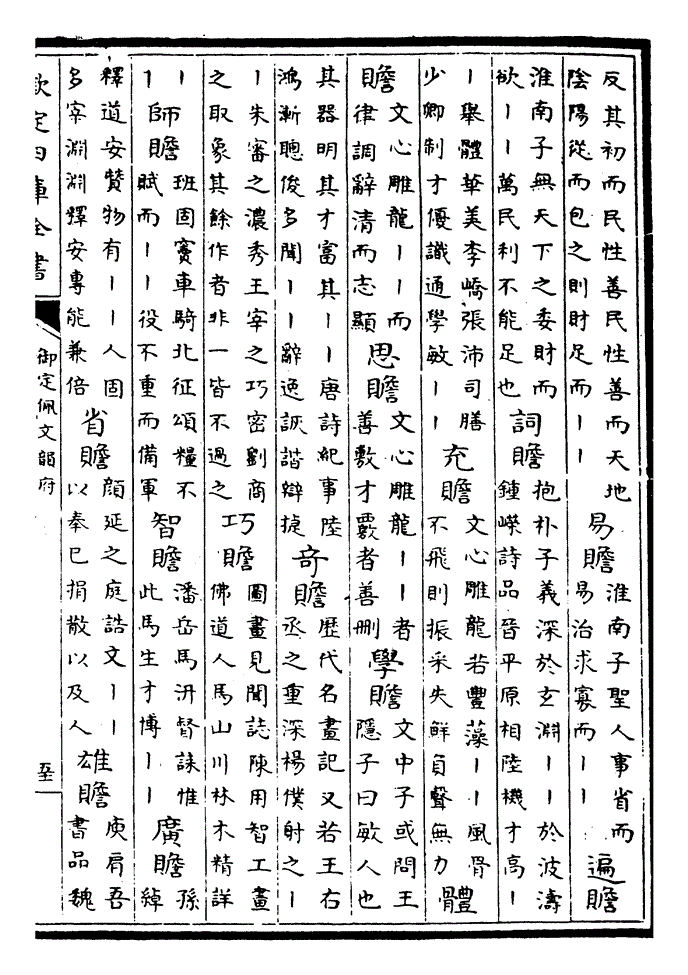 反其初而民性善民性善而天地
陰陽從而包之則財足而丨丨
易贍
淮南子聖人事省而
易治求寡而丨丨
遍贍
淮南子無天下之委財而
欲丨丨萬民利不能足也
詞贍
抱朴子義深於玄淵丨丨於波濤
鍾嶸詩品晉平原相陸機才高丨
丨舉體華美李嶠張沛司膳
少卿制才優識通學敏丨丨
充贍
文心雕龍若豐藻丨丨風骨
不飛則振采失鮮負聲無力
體
贍
文心雕龍丨丨而
律調辭清而志顯
思贍
文心雕龍丨丨者
善敷才覈者善刪
學贍
文中子或問王
隱子曰敏人也
其器明其才富其丨丨唐詩紀事陸
鴻漸聰俊多聞丨丨辭逸詼諧辯捷
奇贍
歴代名畫記又若王右
丞之重深楊僕射之丨
丨朱審之濃秀王宰之巧密劉商
之取象其餘作者非一皆不過之
巧贍
圖畫見聞誌陳用智工畫
佛道人馬山川林木精詳
丨
丨
師贍
班固竇車騎北征頌糧不
賦而丨丨役不重而備軍
智贍
潘岳馬汧督誄惟
此馬生才博丨丨
廣贍
孫
綽
釋道安贊物有丨丨人固
多宰淵淵釋安專能兼倍
省贍
顔延之庭誥文丨丨
以奉已捐散以及人
雄贍
庾肩吾
書品魏
欽定四庫全書
御定佩文韻府